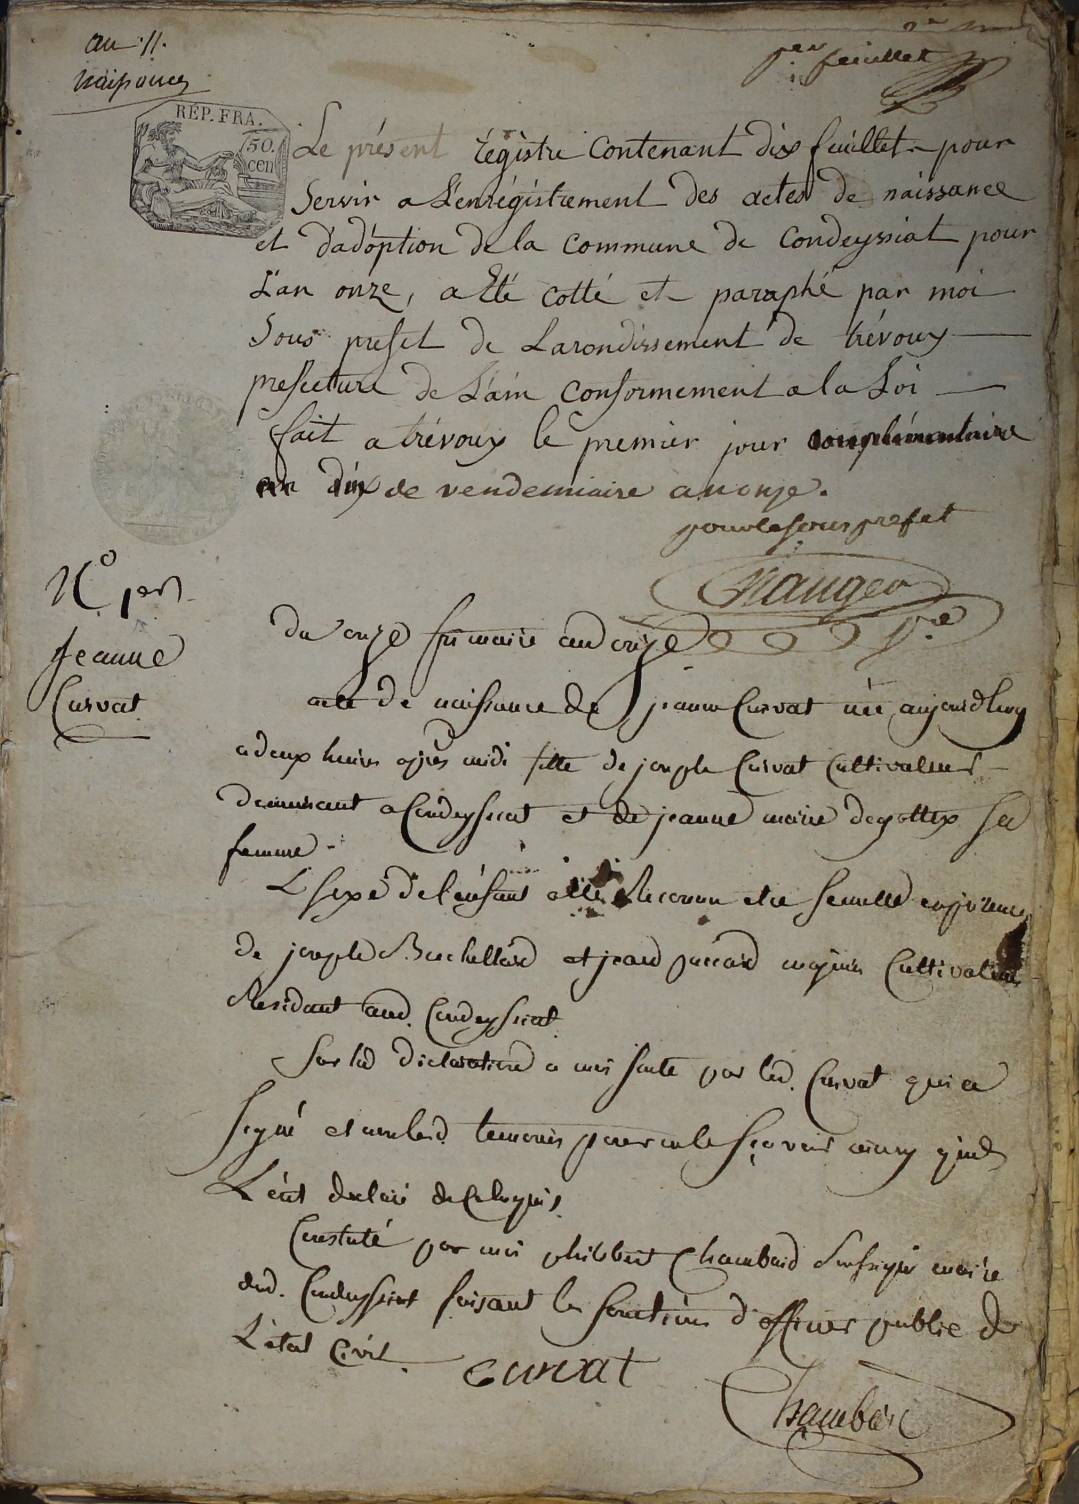 an 11.
naissances
per feuillet
REP. FRA.
50.
cen
Le présent régistre Contenant dix feuillets pour
Servir a L'enrégistrement des actes de naissance
et d'adoption de la commune de Condeyssiat pour
L'an onze, a Eté cotté et paraphé par moi
Sous prefet de Larondissement de trévoux
prefecture de L'ain conformement a la Loi
fait a trévoux le premier jour complémentaire
an dix de vendemiaire an onze.
pour le sous prefet
N.o per
Jeanne
Curvat
Du onze frimaire an onze
acte de naissance de jeanne Curvat née aujourdhuy
a deux heures après midi fille de joseph Curvat Cultivateur
demeurant a Condeyssiat et de jeanne marie degottex sa
femme.
Le sexe de l'enfant a été Reconnu etre femelle en présence
de joseph Buchellard et jean majeurs Cultivateurs
Residant aud. Condeyssiat
Sur la declaration a moi faite par led. Curvat qui a
signé et non lesd. temoins pour ne le sçavoir ainsy quils
L'ont declaré de ce Requis.
Constaté par moi philibert Chambard Soussigné maire
dud. Condeyssiat faisant les fonctions d'officier public de
L'état Civil.
Curvat
Chambard